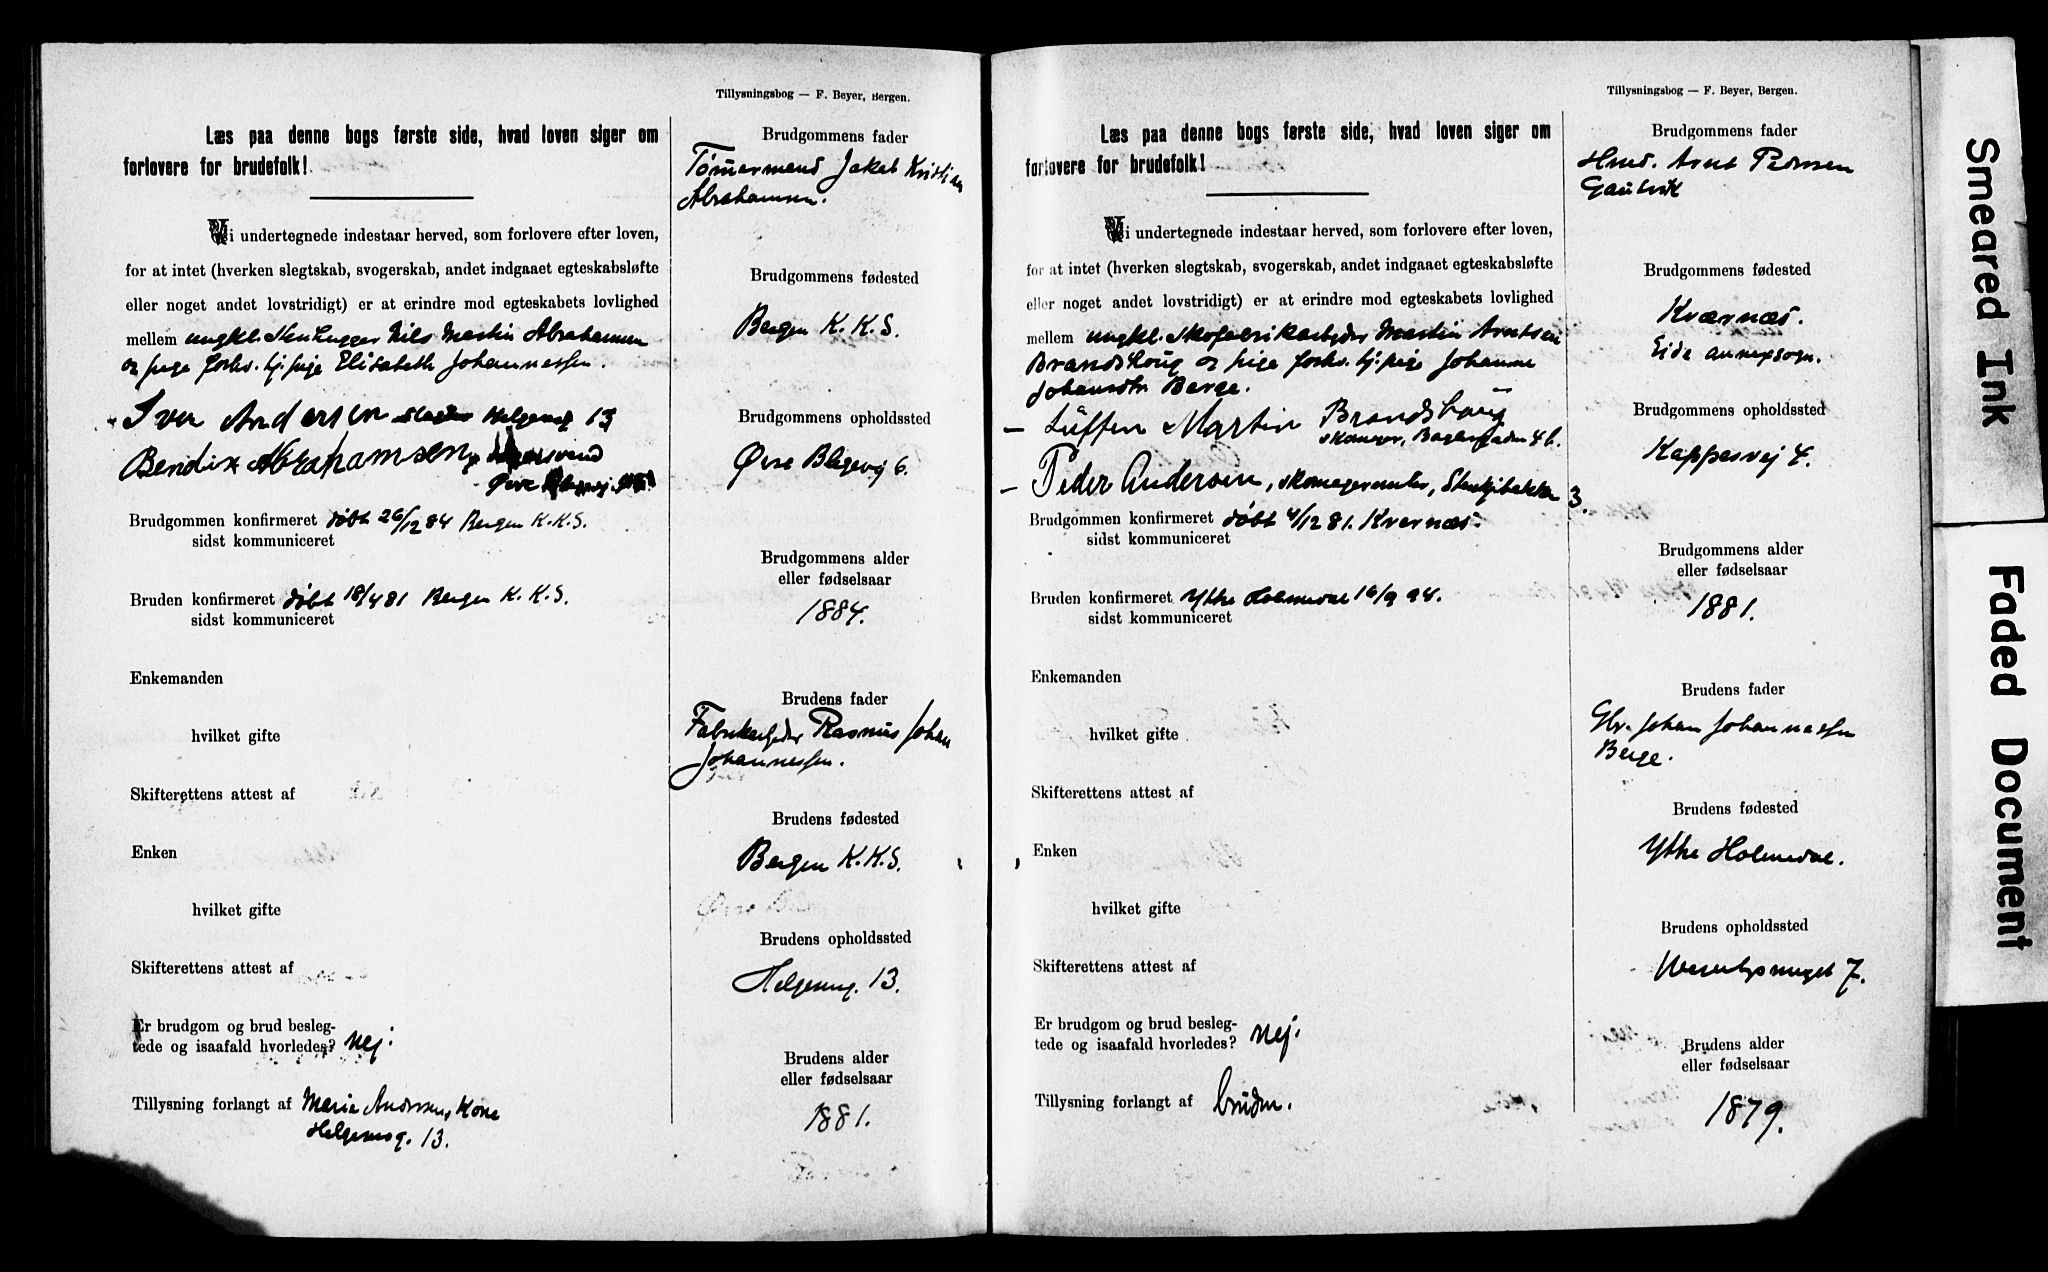 Tillysningsbog — F. Beyer, Bergen.
Læs paa denne bogs første side, hvad loven siger om
forlovere for brudefolk!
Vi undertegnede indestaar herved, som forlovere efter loven,
for at intet (hverken slegtskab, svogerskab, andet indgaaet egteskabsløfte
eller noget andet lovstridigt) er at erindre mod egteskabets lovlighed
mellem ungkl. Stenhugger Nils Martin Abrahamsen
og pige forhv. tj. pige Elisabeth Johannessen.
Iver Andersen Helgesensg 13
Bendix Abrahamsen,
Øvre
Brudgommen konfirmeret døbt 26/12 84 Bergen K.K.S.
sidst kommuniceret
Bruden konfirmeret døbt 18/4 81 Bergen K.K.S.
sidst kommuniceret
Enkemanden
hvilket gifte
Skifterettens attest af
Enken
hvilket gifte
Skifterettens attest af
Er brudgom og brud besleg-
tede og isaafald hvorledes? nej.
Tillysning forlangt af Marie Andersen, Kone
Helgensg. 13.
Brudgommens fader
Tømmermand Jakob Kristian
Abrahamsen.
Brudgommens fødested
Bergen K.K.S.
Brudgommens opholdssted
Øvre Blegevej 6.
Brudgommens alder
eller fødselsaar
1884.
Brudens fader
Fabrikarbeider Rasmus Johan
Johannessen.
Brudens fødested
Bergen K.K.S.
Brudens opholdssted
Helgesensg. 13.
Brudens alder
eller fødselsaar
1881.
Tillysningsbog — F. Beyer, Bergen.
Læs paa denne bogs første side, hvad loven siger om
forlovere for brudefolk!
Vi undertegnede indestaar herved, som forlovere efter loven,
for at intet (hverken slegtskab, svogerskab, andet indgaaet egteskabsløfte
eller noget andet lovstridigt) er at erindre mod egteskabets lovlighed
mellem ungkl. Skofabrikarbeider Martin Arntsen
Brandshoug og pige forhv. tj. pige Johanne
Johansdtr. Berge.
— Martin Brandshaug
skomager, 4 b.
— Peder Andersen, skomagermester, 3.
Brudgommen konfirmeret døbt 4/12 81. Kvernæs.
sidst kommuniceret
Bruden konfirmeret Ytre Holmedal 16/9 94.
sidst kommuniceret
Enkemanden
hvilket gifte
Skifterettens attest af
Enken
hvilket gifte
Skifterettens attest af
Er brudgom og brud besleg-
tede og isaafald hvorledes? nej.
Tillysning forlangt af bruden.
Brudgommens fader
Hmd. Arnt Pedersen
Gautvik
Brudgommens fødested
Kværnæs.
Eide annexsogn.
Brudgommens opholdssted
Kappesvej 4.
Brudgommens alder
eller fødselsaar
1881.
Brudens fader
Gbr. Johan Johannessen
Berge.
Brudens fødested
Ytre Holmedal.
Brudens opholdssted
7.
Brudens alder
eller fødselsaar
1879.
Smeared Ink
Faded Document